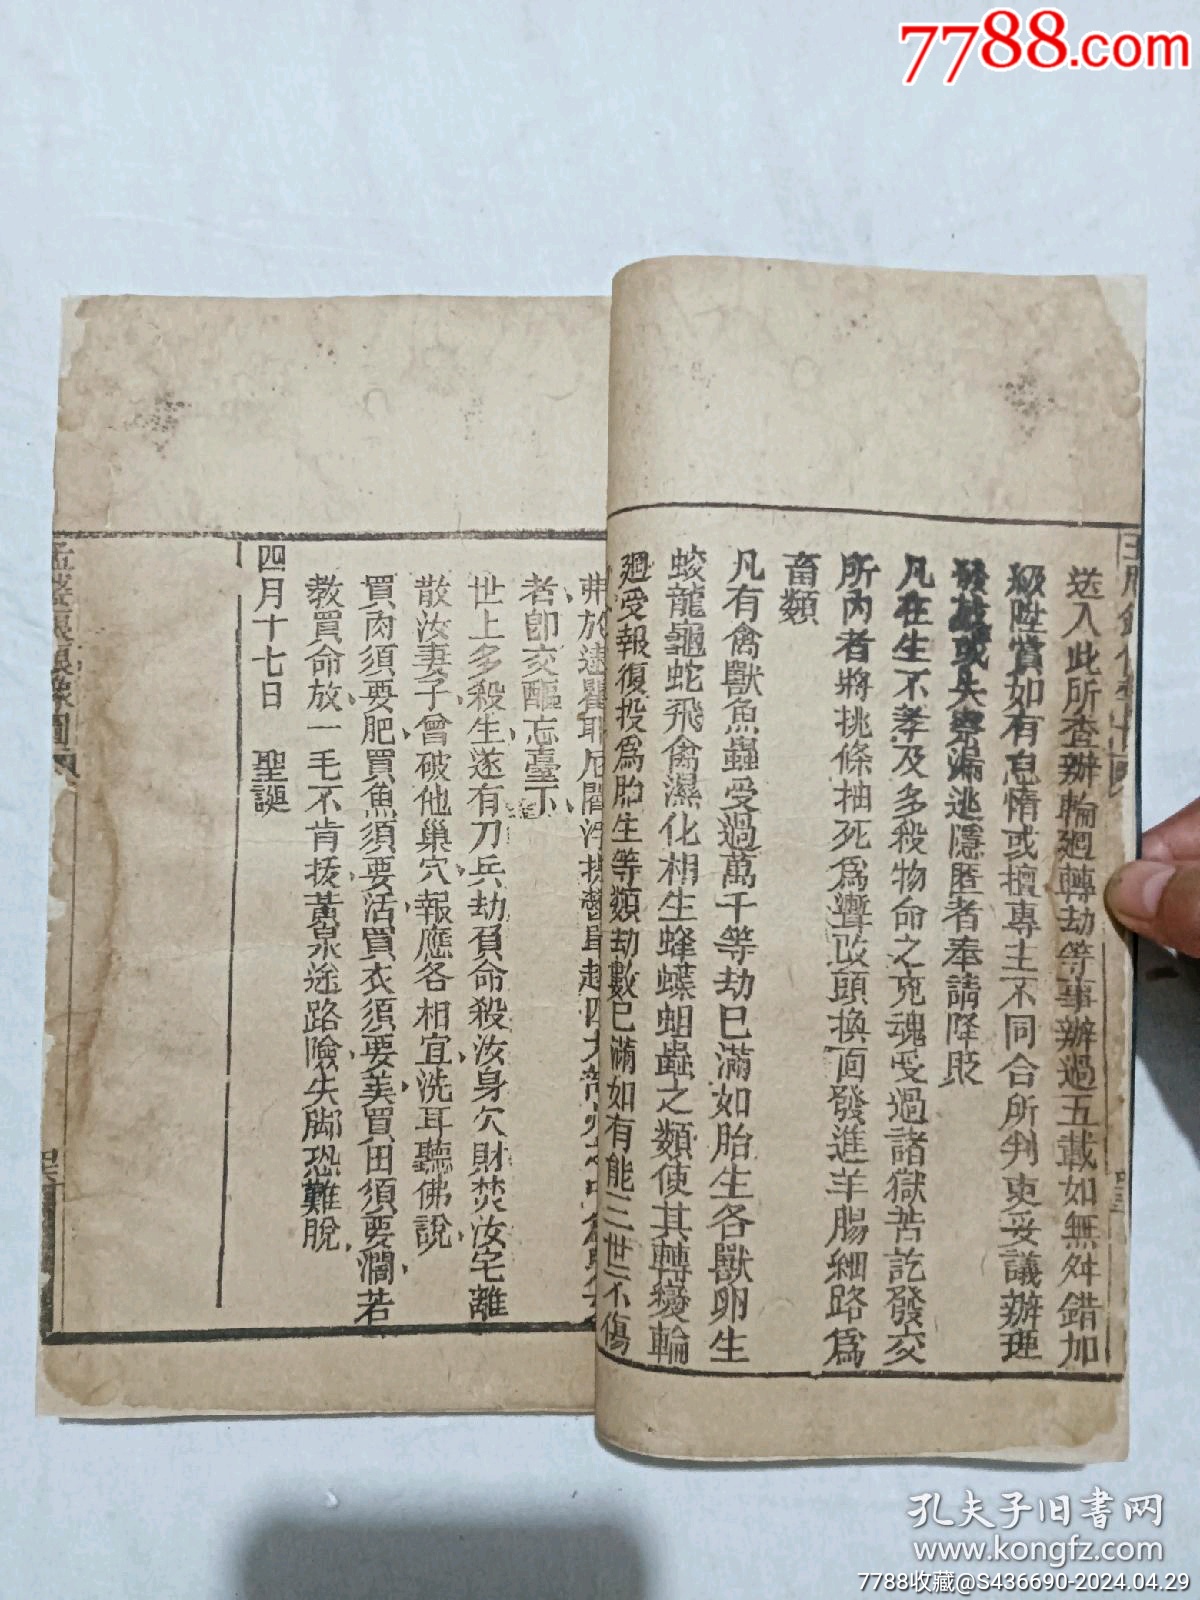 7788.com
送入此所查辦輪迴轉劫等事辦過五載如無舛錯加
級陞賞如有怠惰或擅專主不同合所判吏妥議辦理
發放或失察漏逃隱匿者奉請降貶
凡在生不孝及多殺物命之克魂受過諸獄苦訖發交
所內者將挑條抽死為聻改頭換面發進羊腸細路為
畜類
凡有禽獸魚蟲受過萬千等劫已滿如胎生各獸卵生
蛟龍龜蛇飛禽濕化相生蜂蝶蛆蟲之類使其轉變輪
迴受報復投為胎生等類劫數已滿如有能三世不傷
弗於逮瞿耶尼閻浮提
者卽交醧忘臺下
世上多殺生遂有刀兵劫負命殺汝身欠財焚汝宅離
散汝妻子曾破他巢穴報應各相宜洗耳聽佛說
買肉須要肥買魚須要活買衣須要美買田須要濶若
教買命放一毛不肯拔黃泉途路險失脚恐難脫
四月十七日 聖誕
孔夫子旧书网
www.kongfz.com
7788收藏@S436690-2024.04.29